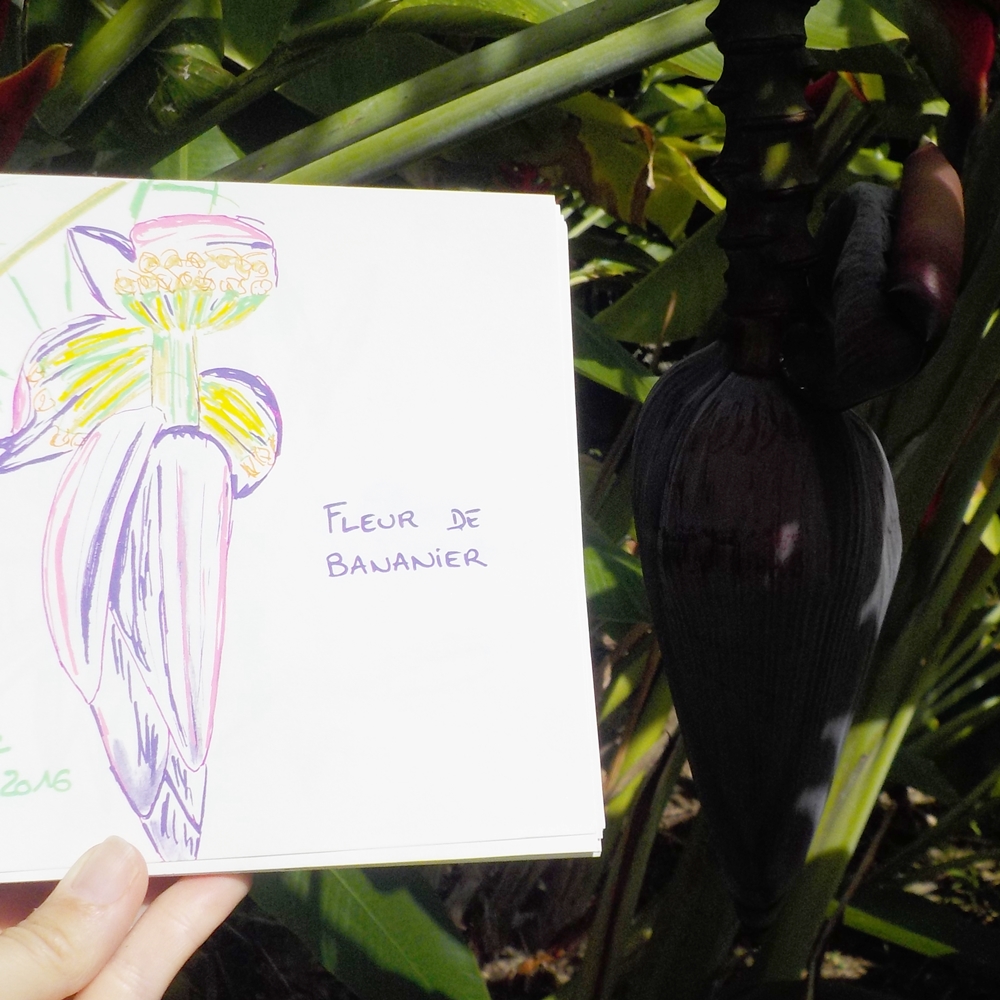 FLEUR DE
BANANIER
2016